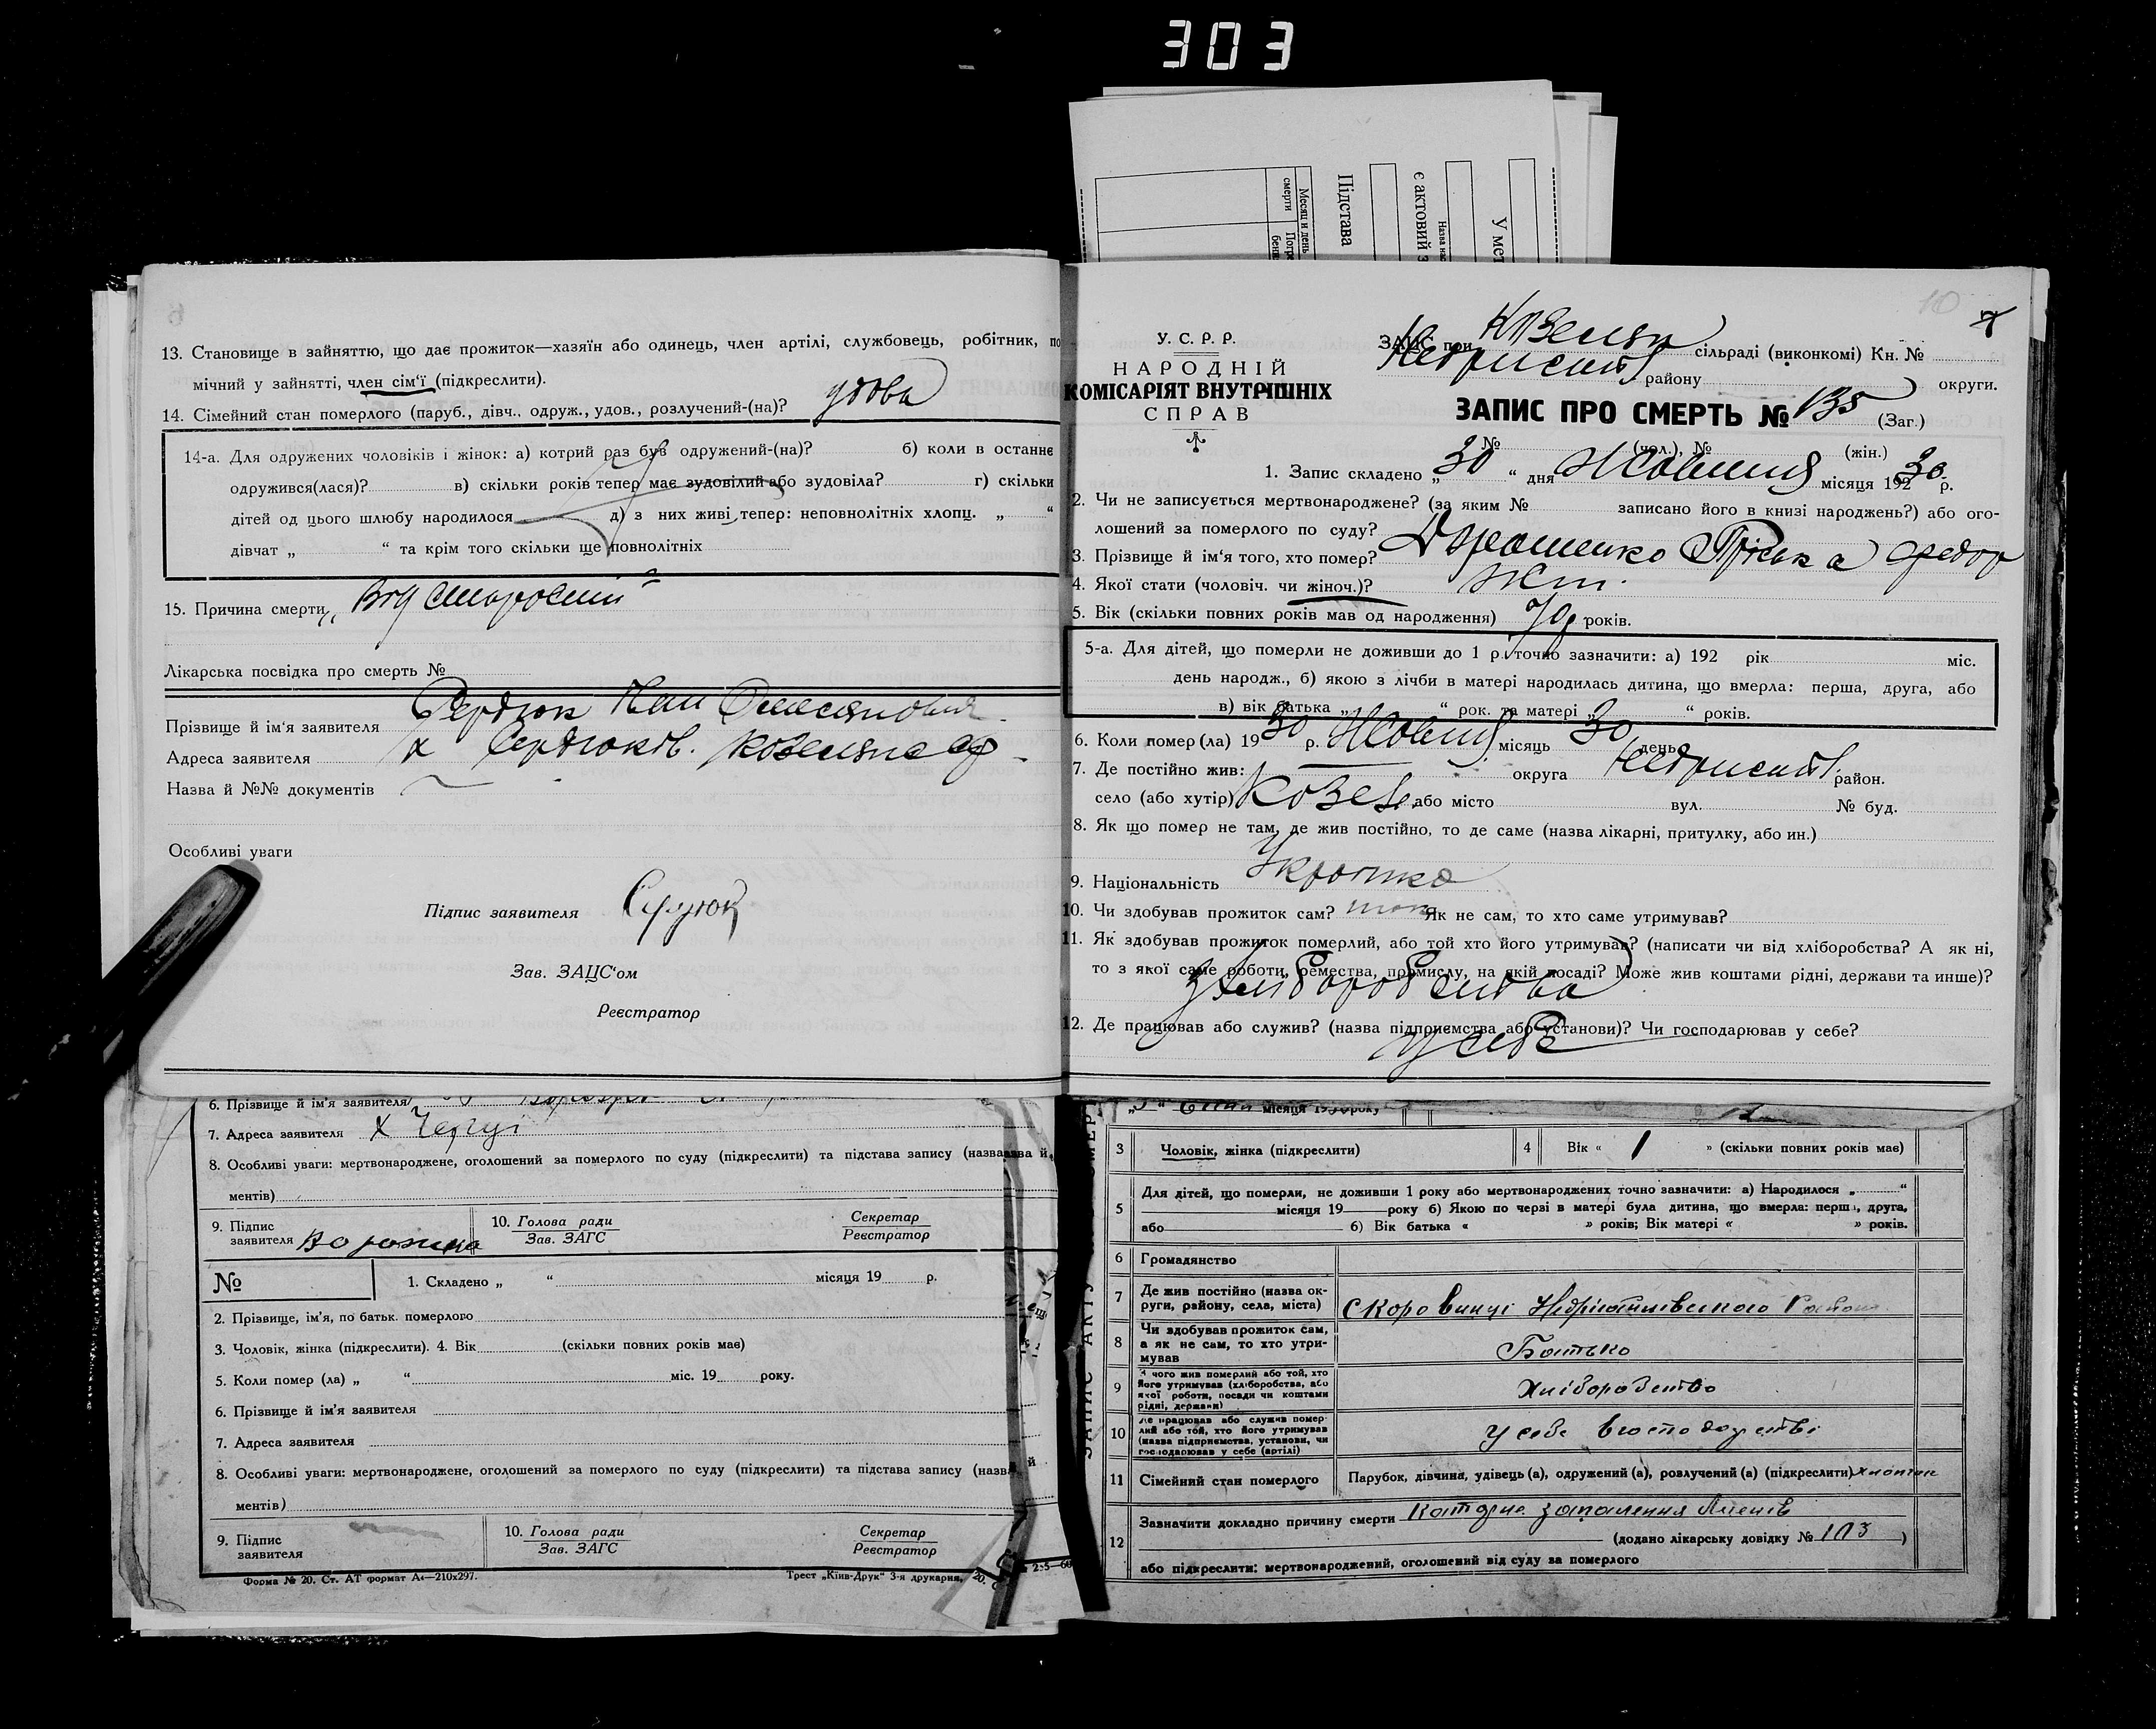 303
13. Становище в зайняттю, що дає прожиток—хазяїн або одинець, член артілі, службовець, робітник, по
мічний у зайнятті, член сім'ї (підкреслити).
14. Сімейний стан померлого (паруб., дівч., одруж., удов., розлучений-(на)? удова
14-а. Для одружених чоловіків і жінок: а) котрий раз був одружений-(на)? б) коли в останнє
одружився(лася)? в) скільки років тепер має зудовілий або зудовіла? г) скільки
дітей од цього шлюбу народилося д) з них живі тепер: неповнолітніх хлопц. „ “
дівчат „ “ та крім того скільки ще повнолітніх
15. Причина смерти
Лікарська посвідка про смерть №
Прізвище й ім'я заявителя Сердюк
Адреса заявителя х Сердюків.
Назва й №№ документів
Особливі уваги
Підпис заявителя Сердюк
Зав. ЗАЦС'ом
Реєстратор
6. Прізвище й ім'я заявителя
7. Адреса заявителя х
8. Особливі уваги: мертвонароджене, оголошений за померлого по суду (підкреслити) та підстава запису (назва й
ментів)
9. Підпис заявителя
10. Голова ради Зав. ЗАГС
Секретар Реєстратор
№ 1. Складено „ “ місяця 19 р.
2. Прізвище, ім'я, по батьк. померлого
3. Чоловік, жінка (підкреслити). 4. Вік (скільки повних років має)
5. Коли помер (ла) „ “ міс. 19 року.
6. Прізвище й ім'я заявителя
7. Адреса заявителя
8. Особливі уваги: мертвонароджене, оголошений за померлого по суду (підкреслити) та підстава запису (назва й
ментів)
9. Підпис заявителя
10. Голова ради Зав. ЗАГС
Секретар Реєстратор
Форма № 20. Ст. АТ формат А4—210х297.
Трест „Київ-Друк“ 3-я друкарня,
Месяц и день смерти
Підстава
є актовий з
У мет
10
У. С. Р. Р.
НАРОДНІЙ
КОМІСАРІЯТ ВНУТРІШНІХ
СПРАВ
ЗАЦС при сільраді (виконкомі) Кн. №
району округи.
ЗАПИС ПРО СМЕРТЬ № 135 (Заг.)
№ (чол.), № (жін.)
1. Запис складено „ 30 “ дня Жовтня місяця 192 30 р.
2. Чи не записується мертвонароджене? (за яким № записано його в книзі народжень?) або ого-
лошений за померлого по суду?
3. Прізвище й ім'я того, хто помер? Дорошенко Пріська Федор
4. Якої стати (чоловіч. чи жіноч.)?
5. Вік (скільки повних років мав од народження) 70 років.
5-а. Для дітей, що померли не доживши до 1 р. точно зазначити: а) 192 рік міс.
день народж., б) якою з лічби в матері народилась дитина, що вмерла: перша, друга, або
в) вік батька „ “ рок. та матері „ “ років.
6. Коли помер (ла) 19 30 р. Жовтня місяць 30 день
7. Де постійно жив: округа район.
село (або хутір) або місто вул. № буд.
8. Як що помер не там, де жив постійно, то де саме (назва лікарні, притулку, або ин.)
9. Національність
10. Чи здобував прожиток сам? Як не сам, то хто саме утримував?
11. Як здобував прожиток померлий, або той хто його утримував? (написати чи від хліборобства? А як ні,
то з якої саме роботи, ремества, промислу, на якій посаді? Може жив коштами рідні, держави та инше)?
з хлиборобства
12. Де працював або служив? (назва підприємства або установи)? Чи господарював у себе?
у себе
місяця 1930 року
ЗАПИС АКТУ
3 Чоловік, жінка (підкреслити) 4 Вік « 1 » (скільки повних років має)
5 Для дітей, що померли, не доживши 1 року або мертвонароджених точно зазначити: а) Народилося „ “
місяця 19 року б) Якою по черзі в матері була дитина, що вмерла: перша, друга,
або б) Вік батька « » років; Вік матері « » років.
6 Громадянство
7 Де жив постійно (назва ок-
руги, району, села, міста)
8 Чи здобував прожиток сам,
а як не сам, то хто утри-
мував Батько
9 З чого жив померлий або той, хто
його утримував (хліборобства, або
якої роботи, посади чи коштами
рідні, держави) Хліборобство
10 Де працював або служив помер-
лий або той, хто його утримував
(назва підприємства, установи, чи
господарював у себе (артілі) У себе в господарстві
11 Сімейний стан померлого Парубок, дівчина, удівець (а), одружений (а), розлучений (а) (підкреслити) хлопчик
12 Зазначити докладно причину смерти запалення
(додано лікарську довідку № 103 )
або підкреслити: мертвонароджений, оголошений від суду за померлого